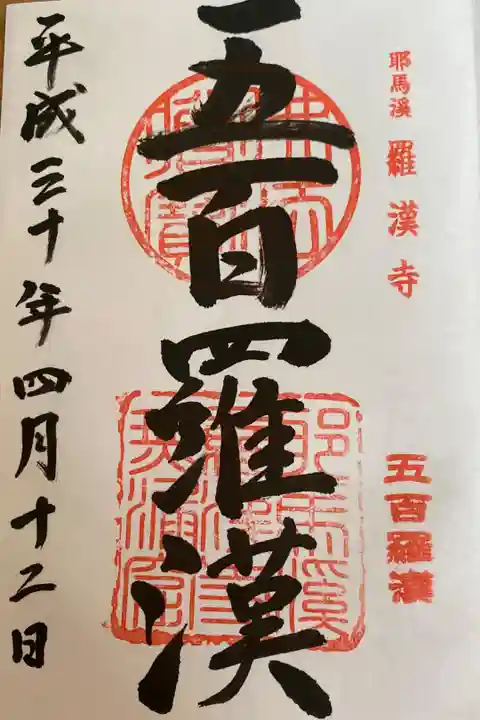 耶馬溪 羅漢寺
五百羅漢
五百羅漢
平成三十年四月十二日